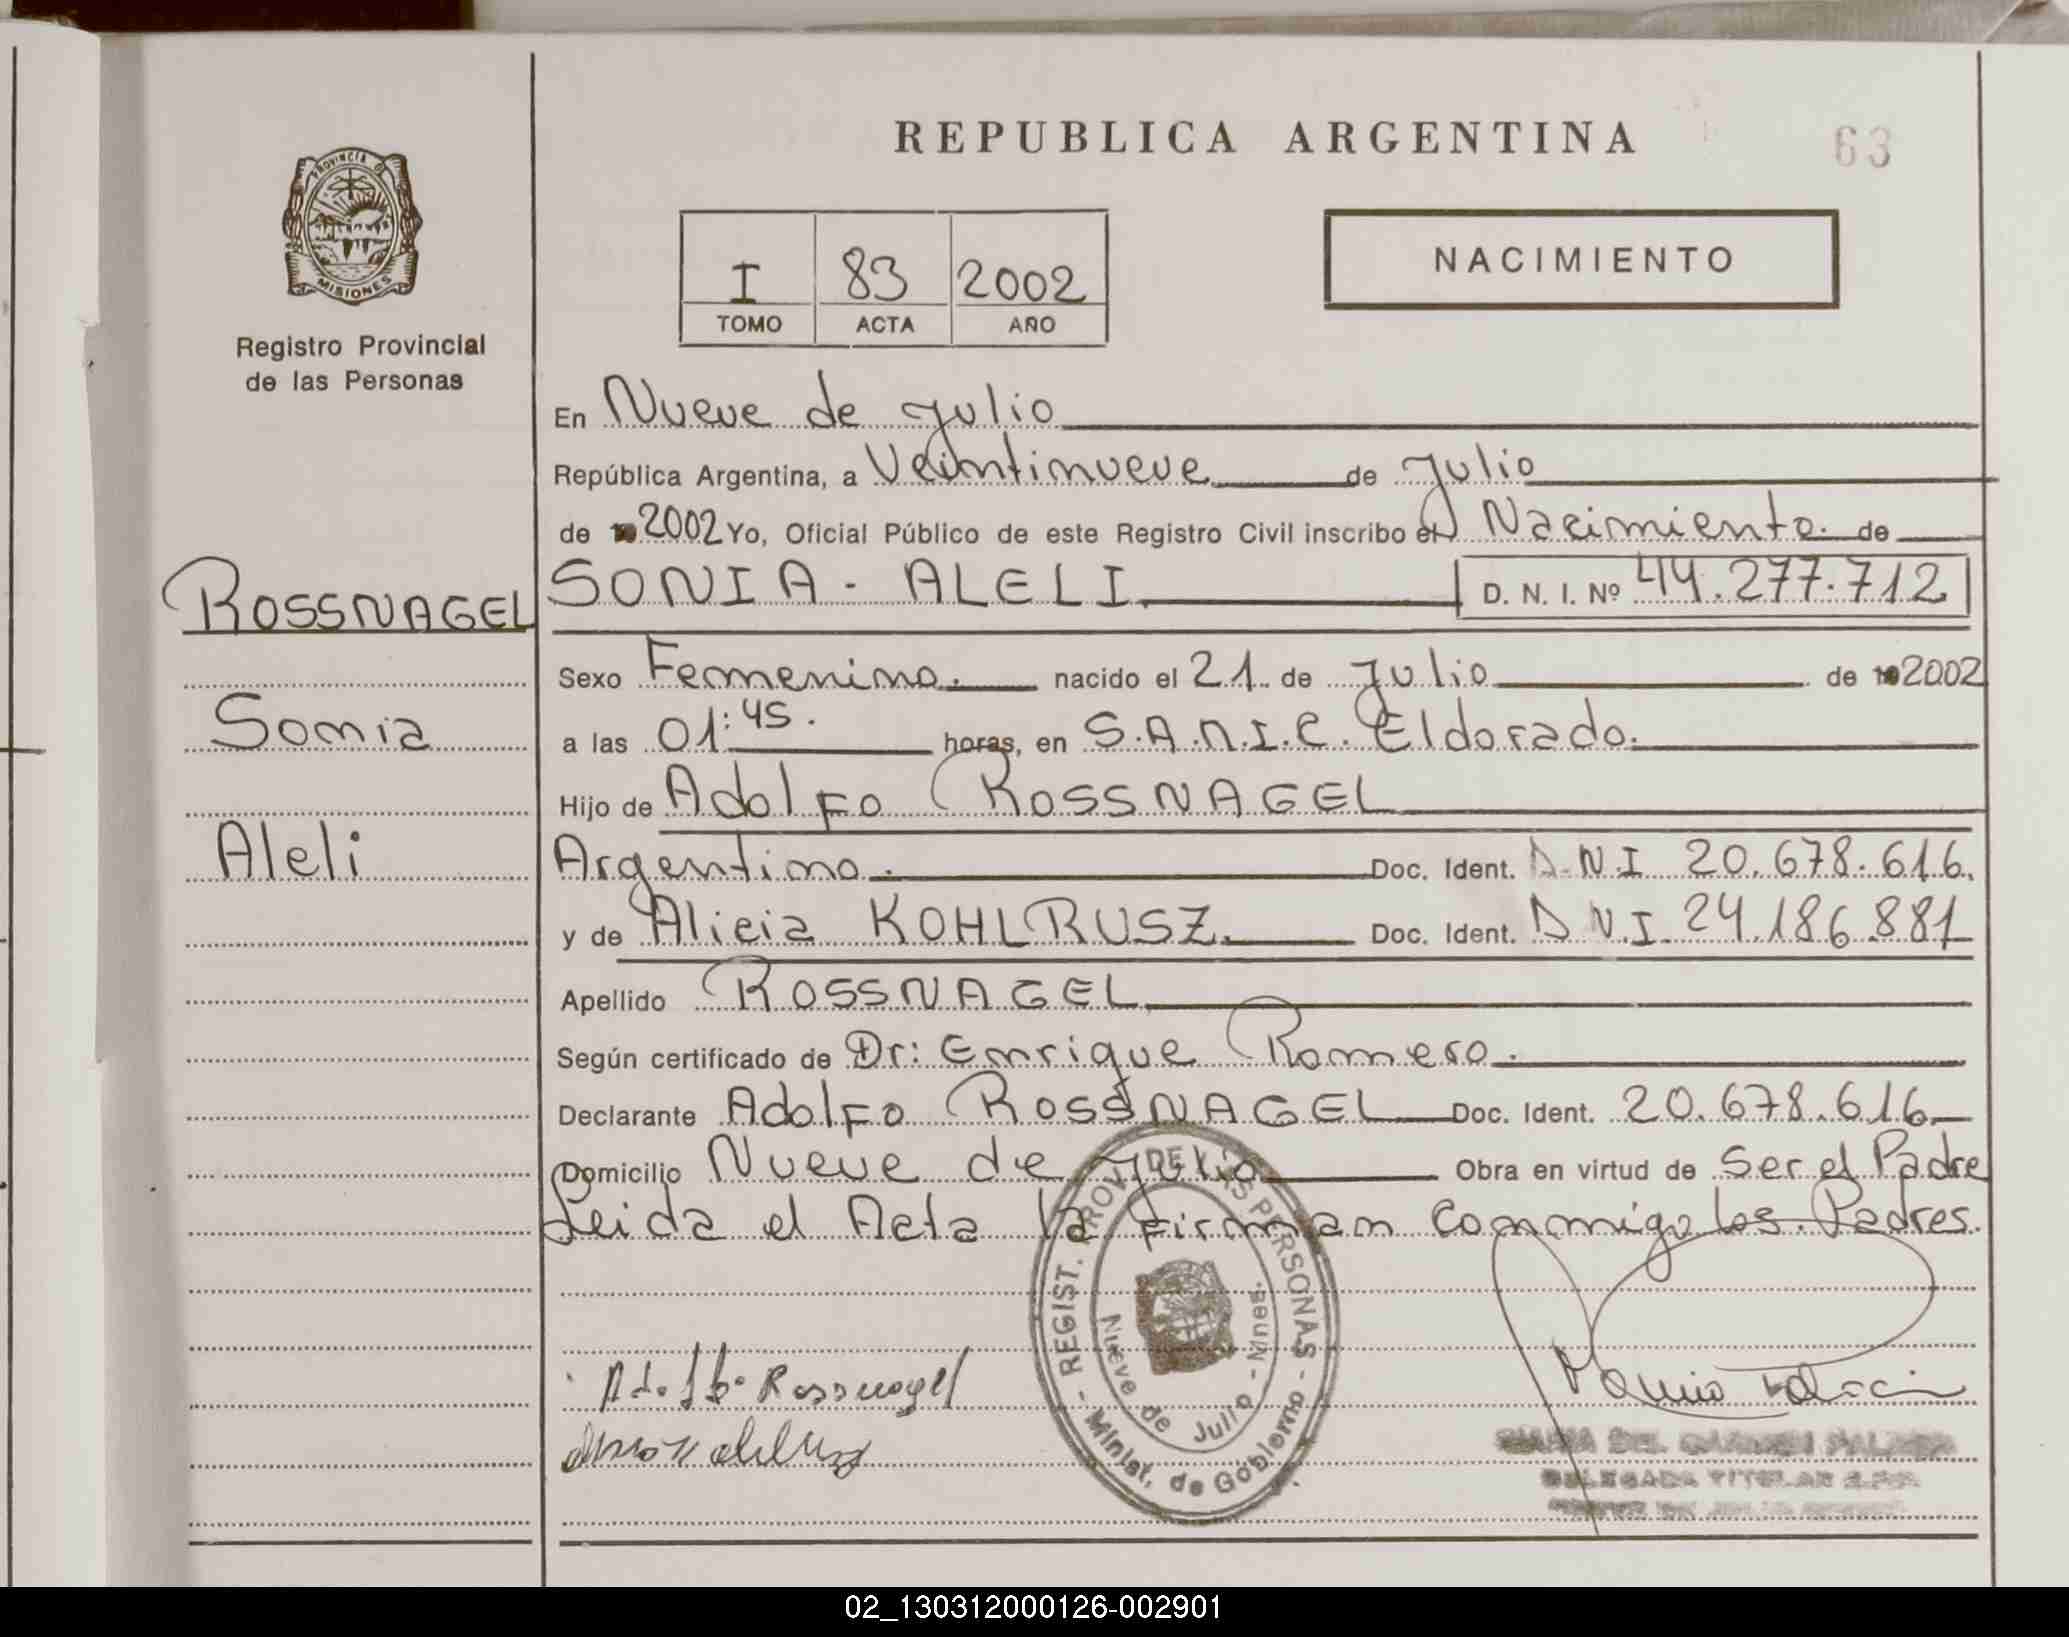 REPUBLICA ARGENTINA
63
PROVINCIA D
MISIONES
Registro Provincial
de las Personas
I 83 2002
TOMO ACTA AÑO
NACIMIENTO
En Nueve de Julio
República Argentina, a Veintinueve de Julio
de 2002 Yo, Oficial Público de este Registro Civil inscribo el Nacimiento. de
ROSSNAGEL
SONIA - ALELI. D. N. I. Nº 44.277.712
Sexo Femenino. nacido el 21 de Julio de 2002
Sonia
a las 01:45. horas, en S.A.N.I.C. Eldorado.
Hijo de Adolfo ROSSNAGEL
Aleli
Argentino. Doc. Ident. D.N.I 20.678.616.
y de Alicia KOHLRUSZ. Doc. Ident. D N.I. 24.186.881
Apellido ROSSNAGEL
Según certificado de Dr: Enrique Romero.
Declarante Adolfo ROSSNAGEL Doc. Ident. 20.678.616.
Domicilio Nueve de Julio Obra en virtud de Ser el Padre
Leida el Acta la firman conmigo los Padres.
- REGIST. PROV. DE LAS PERSONAS -
Minist. de Gobierno
Nueve de Julio - Mnes.
Adolfo Rossnagel
MARIA DEL CARMEN
DELEGADA TITULAR
02_130312000126-002901